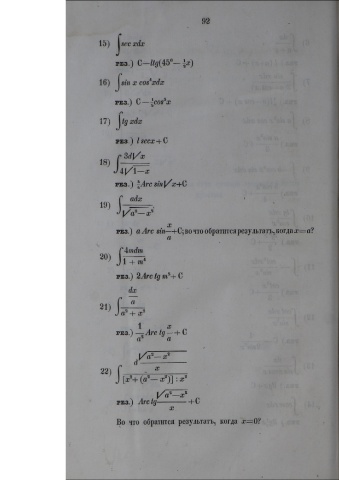 92
15) ∫sec xdx
РЕЗ.) C—ltg(45°— ½x)
16) ∫sin x cos³xdx
РЕЗ.) C — ¼cos⁴x
17) ∫tg xdx
РЕЗ.) l secx + C
18) ∫ 3d√x / 4√1—x
РЕЗ.) ¾Arc sin√x+C
19) ∫ adx / √a²—x²
РЕЗ.) a Arc sin x/a +C; во что обратится результатъ, когда x=a?
20) ∫ 4mdm / 1 + m⁴
РЕЗ.) 2Arc tg m² + C
21) ∫ dx/a / a² + x²
РЕЗ.) 1/a² Arc tg x/a + C
22) ∫ d √a²—x² / x / [x²+(a²—x²)] : x²
РЕЗ.) Arc tg √a²—x² / x + C
Во что обратится результатъ, когда x=0?